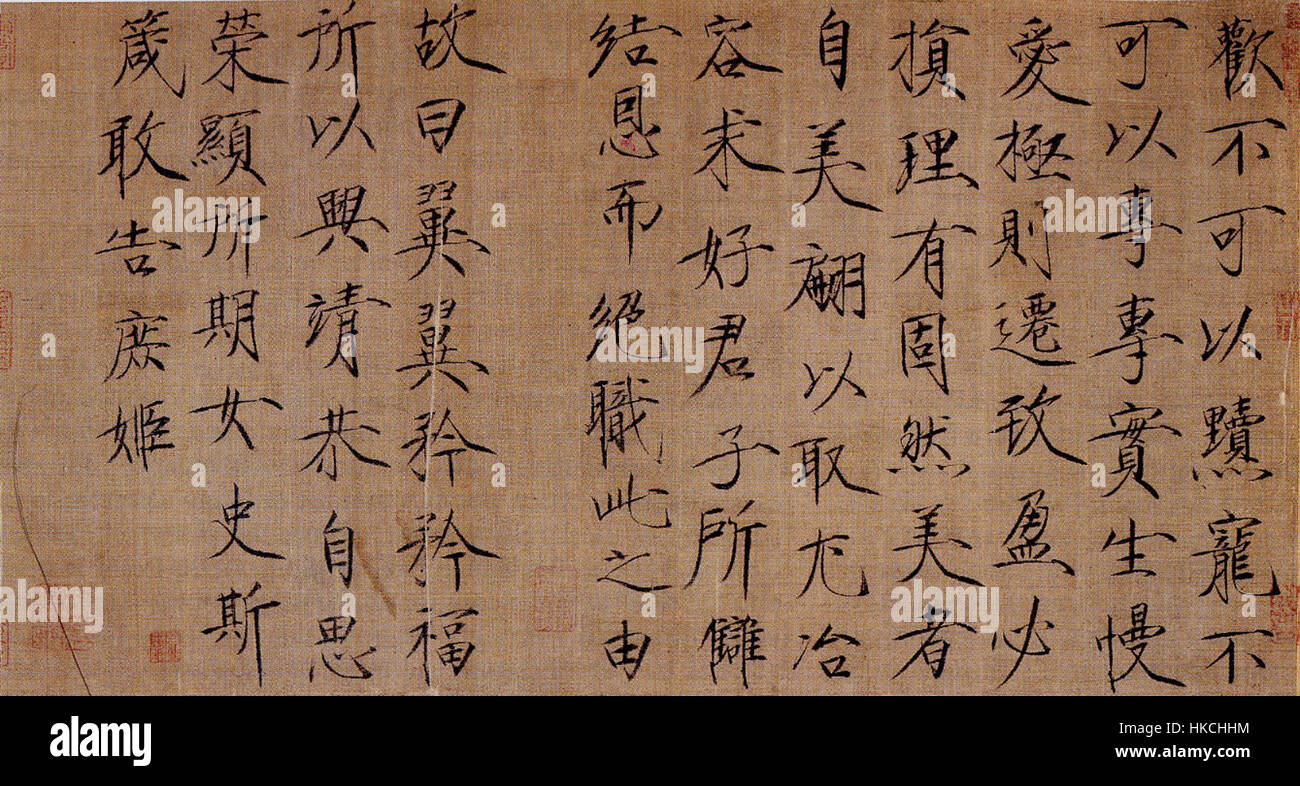 歡不可以黷寵不
可以專專實生慢
愛極則遷致盈必
損理有固然美者
自美翩以取尤冶
容求好君子所讎
結恩而絕職此之由
故曰翼翼矜矜福
所以興靖恭自思
榮顯所期女史斯
箴敢告庶姬
alamy
Image ID: HKCHHM
www.alamy.com